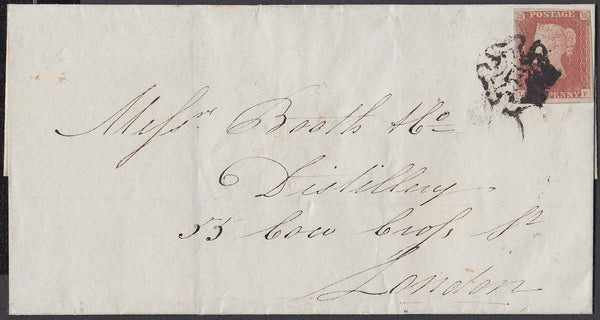 POSTAGE
PENNY
Messrs Booth & Co
Distillery
55 Cow Cross St
London